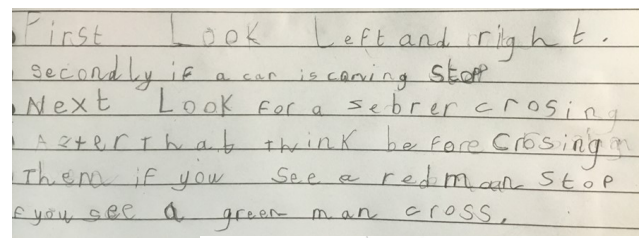 First Look Left and right.
secondly if a car is coming stop
Next Look For a sebrer crosing
Azter that think before Crosing
Then if you See a red man Stop
f you see a green man cross.